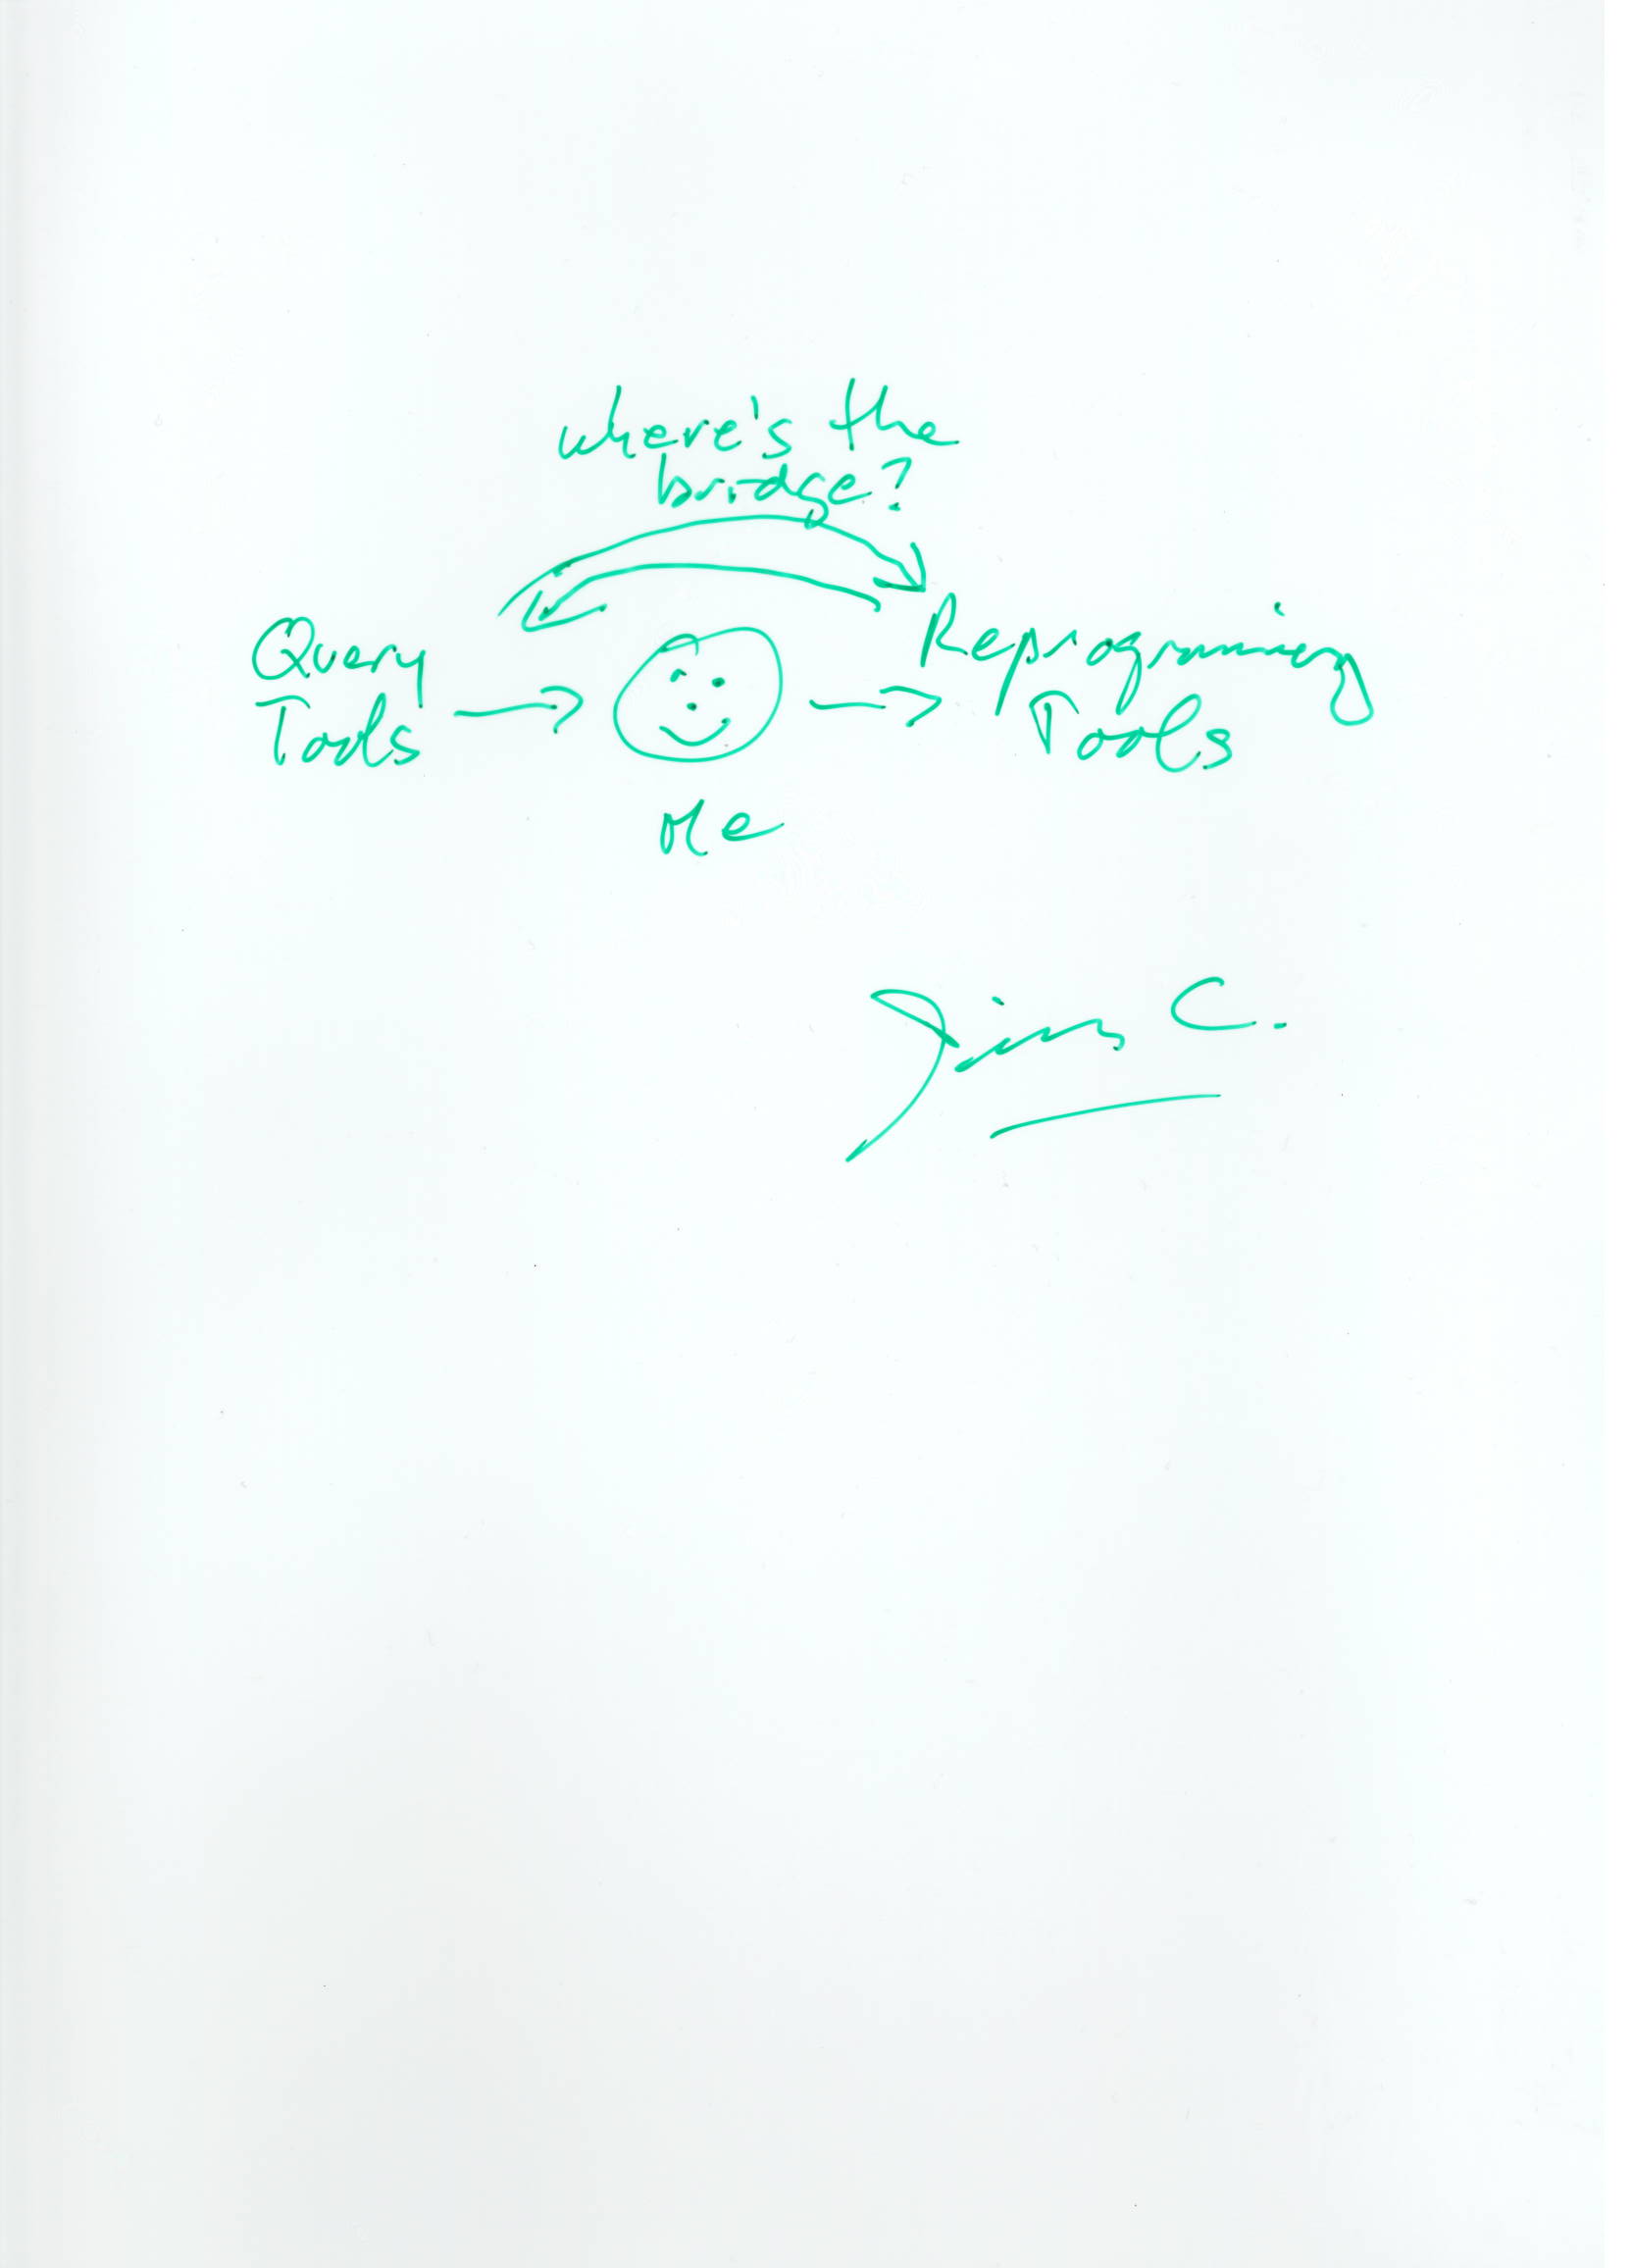 where's the
bridge?
Query
Tools
Reprogramming
Tools
Me
Jim C.